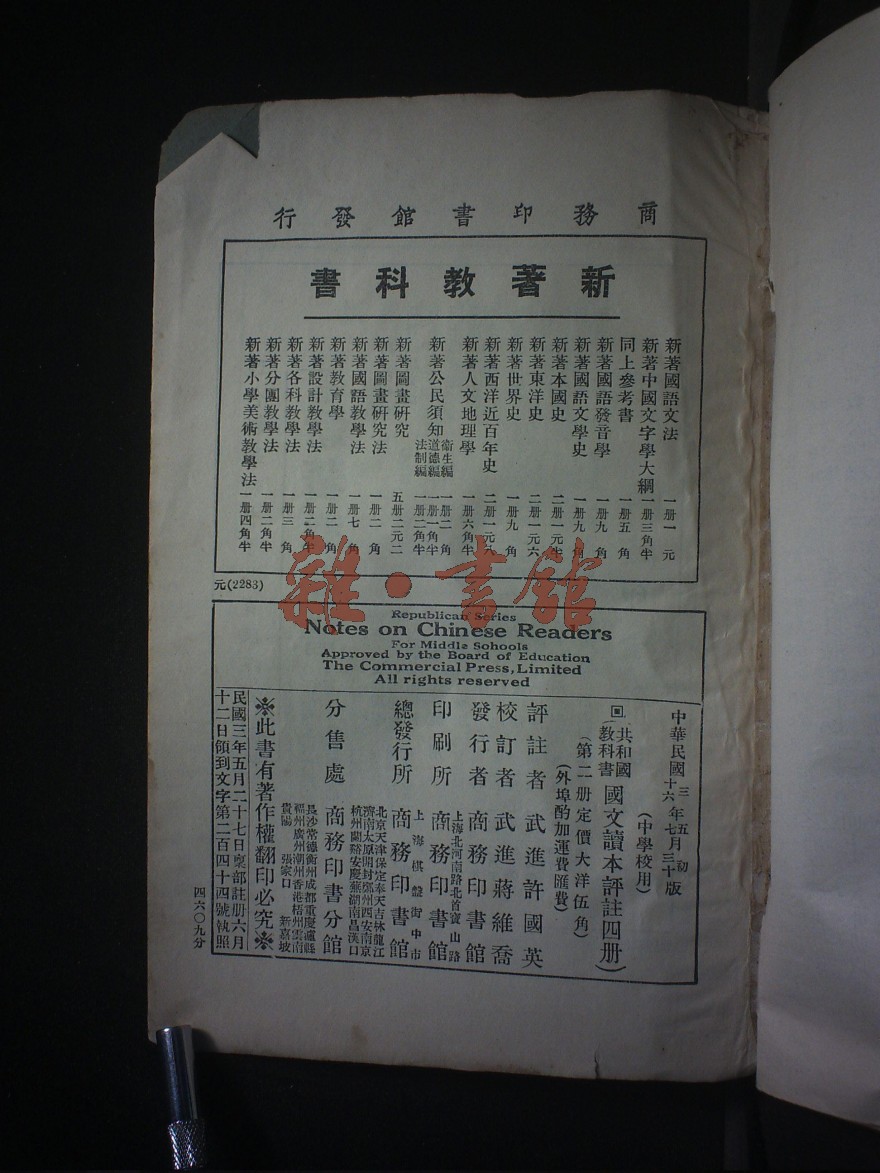 商務印書館發行
新著教科書
新著國語文法 一册一元
新著中國文字學大綱 一册三角半
同上參考書 一册五角
新著國語發音學 一册九角
新著國語文學史 一册九角
新著本國史 二册一元半
新著東洋史 二册一元六
新著世界史 一册九角
新著西洋近百年史 二册一元九
新著人文地理學 一册六角半
新著公民須知
衛生編 一册二角
道德編 一册一角半
法制編 一册二角半
新著圖畫研究 五册二元二
新著圖畫研究法 一册二角
新著國語教學法 一册七角
新著教育學 一册二角
新著設計教學法 一册二角半
新著各科教學法 一册三角
新著分團教學法 一册二角半
新著小學美術教學法 一册四角半
元(2283)
雜·書館
Republican Series
Notes on Chinese Readers
For Middle Schools
Approved by the Board of Education
The Commercial Press, Limited
All rights reserved
中華民國三年五月初版
十六年七月三十版
(中學校用)
回共和國教科書 國文讀本評註四册)
(第二册定價大洋伍角)
(外埠酌加運費匯費)
評註者 武進許國英
校訂者 武進蔣維喬
發行者 商務印書館
上海北河南路北首寶山路
印刷所 商務印書館
上海棋盤街中市
總發行所 商務印書館
北京天津保定奉天吉林龍江
濟南太原開封鄭州西安南京
杭州蘭谿安慶蕪湖南昌漢口
分售處 商務印書分館
長沙常德衡州成都重慶瀘縣
福州廣州潮州香港梧州雲南
貴陽 張家口 新嘉坡
※此書有著作權翻印必究※
民國三年五月二十七日稟部註册六月
十二日領到文字第二百四十四號執照
四六〇九分